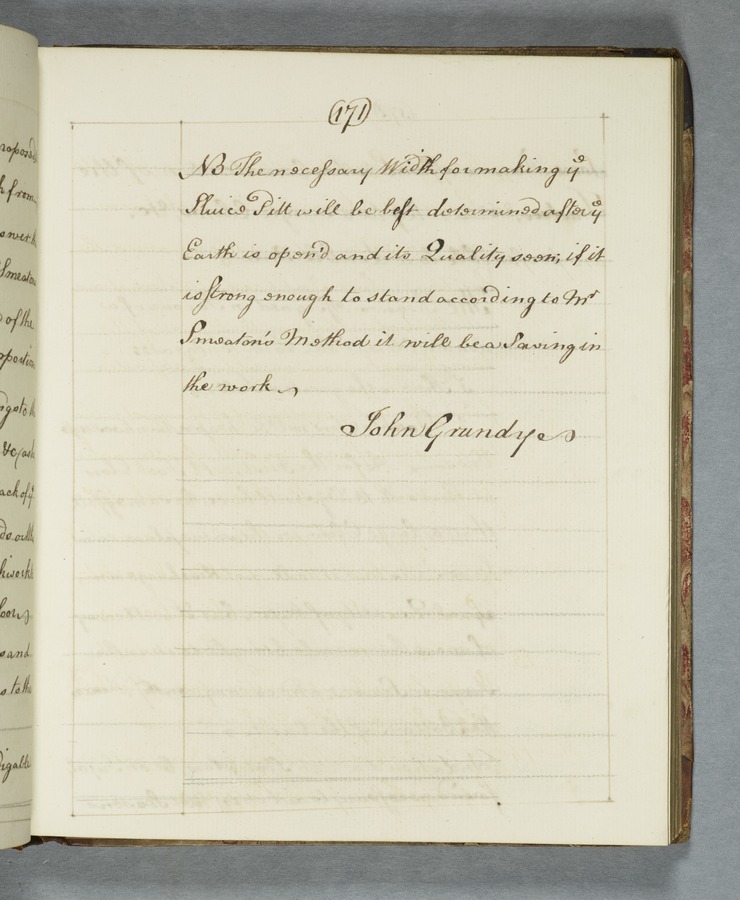 (171)
NB The necessary Width for making ye
Sluice Pitt will be best determined after ye
Earth is open'd and its Quality seen; if it
is strong enough to stand according to Mr
Smeaton's Method it will be a Saving in
the work
John Grundy
h from
Smeaton
of the
and
to the